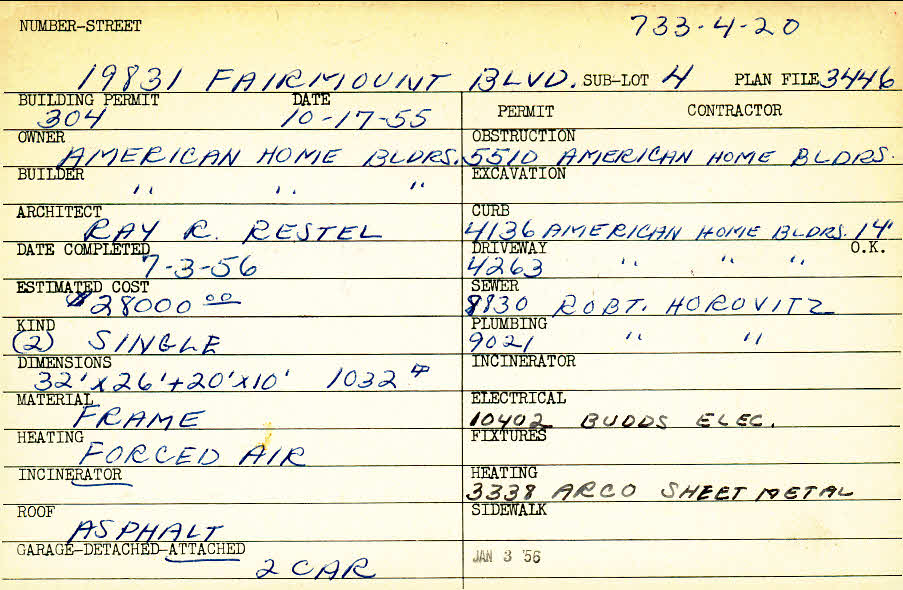 NUMBER-STREET 733-4-20
19831 FAIRMOUNT BLVD. SUB-LOT 4 PLAN FILE 3446
BUILDING PERMIT DATE
304 10-17-55
PERMIT CONTRACTOR
OWNER
AMERICAN HOME BLDRS.
OBSTRUCTION
5510 AMERICAN HOME BLDRS.
BUILDER
" " "
EXCAVATION
ARCHITECT
RAY R. RESTEL
CURB
4136 AMERICAN HOME BLDRS. 14'
DATE COMPLETED
7-3-56
DRIVEWAY O.K.
4263 " " "
ESTIMATED COST
$28000 00
SEWER
8830 ROBT. HOROVITZ
KIND
(2) SINGLE
PLUMBING
9021 " "
DIMENSIONS
32'x26'+20'x10' 1032
INCINERATOR
MATERIAL
FRAME
ELECTRICAL
10402 BUDDS ELEC.
HEATING
FORCED AIR
FIXTURES
INCINERATOR
HEATING
3338 ARCO SHEET METAL
ROOF
ASPHALT
SIDEWALK
GARAGE-DETACHED-ATTACHED
2 CAR
JAN 3 '56